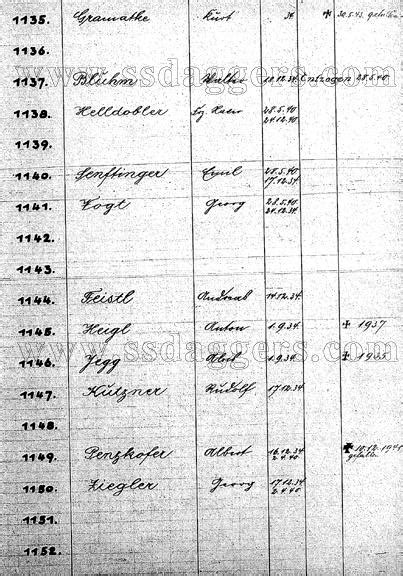 1135. Gramatke Kurt ✠ 30.5.43. gefallen
www.ssdaggers.com
1136.
1137. Bluhm Walter 10.12.34. Entzogen 28.5.40.
1138. Helldobler Xaver 28.5.40.
21.12.40.
1139.
1140. Senftinger Emil 28.5.40.
17.12.34.
1141. Vogt Georg 28.5.40.
21.12.34.
1142.
1143.
1144. Feistl Andreas 14.12.34.
1145. Heigl Anton 1.9.34. ✠ 1937
www.ssdaggers.com
1146. Jegg Abel 1.9.34. ✠ 1935
1147. Kutzner Rudolf 17.12.34
1148.
1149. Penzkofer Albert 16.12.34 ✠ 10.12.1941
2.4.40. gefallen
1150. Ziegler Georg 17.12.34
2.4.40.
1151.
1152.